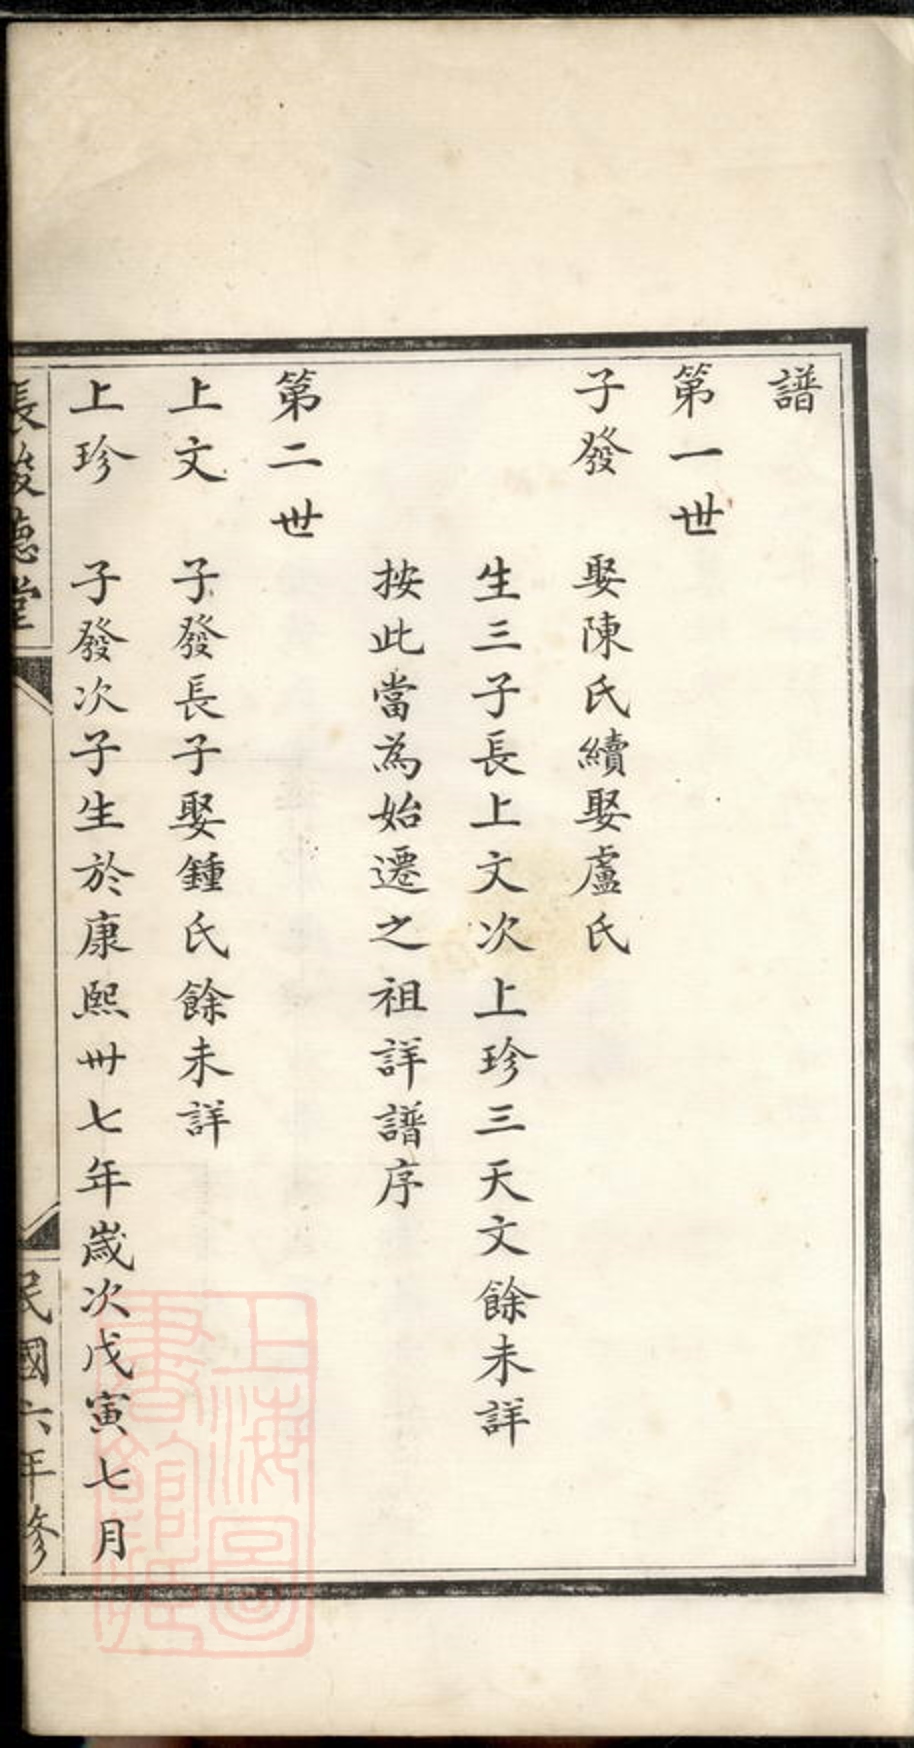 譜
第一世
子發 娶陳氏續娶盧氏
生三子長上文次上珍三天文餘未詳
按此當為始遷之祖詳譜序
第二世
上文 子發長子娶鍾氏餘未詳
上珍 子發次子生於康熙卅七年歲次戊寅七月
德堂
民國六年修
上海圖
書館藏